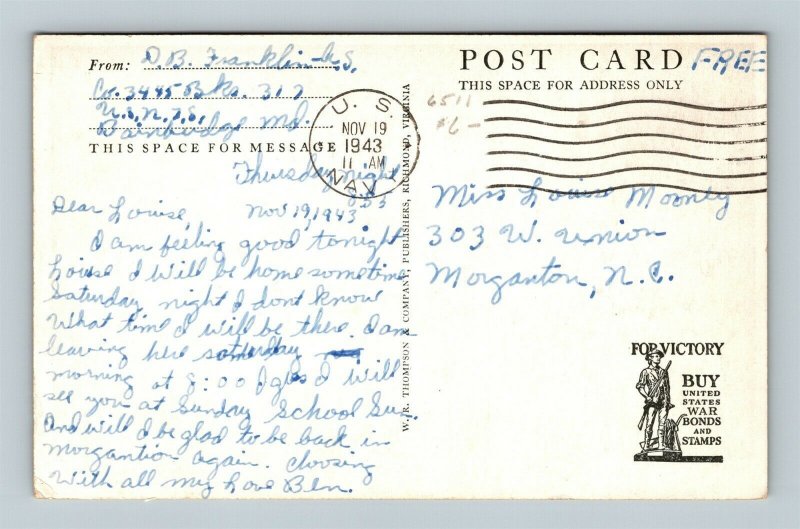 From: D.B. Franklin A.S.
Co. 3445 Bks. 317
U.S.N.T.S.
Bainbridge Md.
THIS SPACE FOR MESSAGE
POST CARD
FREE
THIS SPACE FOR ADDRESS ONLY
6511
$6-
U. S.
NOV 19
1943
11 AM
NAVY
W. R. THOMPSON & COMPANY, PUBLISHERS, RICHMOND, VIRGINIA
Thursday night
8:55
Nov 19, 1943
Dear Louise,
I am feeling good tonight
Louise I will be home sometime
Saturday night I dont know
What time I will be there. I am
leaving here saturday
morning at 8:00 I will
see you at Sunday School Sun.
And will I be glad to be back in
Morgantion again. Closing
With all my Love Ben.
Miss Louise Mooney
303 W. Union
Morganton, N.C.
FOR VICTORY
BUY
UNITED
STATES
WAR
BONDS
AND
STAMPS